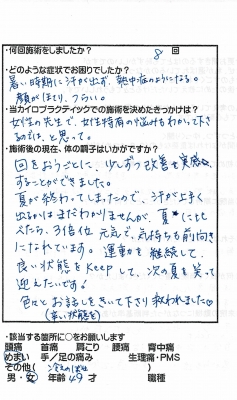 ・何回施術をしましたか？
8 回
・どのような症状でお困りでしたか？
暑い時期に汗が出ず、熱中症のようになる。
顔がほてり、つらい。
・当カイロプラクティックでの施術を決めたきっかけは？
女性の先生で、女性特有の悩みもわかって下さ
るのでは、と思って。
・施術後の現在、体の調子はいかがですか？
回をおうごとに、少しずつ改善を実感
することができました。
夏が終わってしまったので、汗が上手く
出るかはまだわかりませんが、夏にくら
べたら、3倍位元気で、気持ちも前向き
になれています。運動を継続して、
良い状態をKeepして、次の夏を笑って
迎えたいです。
色々とお話しをきいて下さり救われました♡
(辛い状態を)
・該当する箇所に○をお願いします
頭痛 首痛 肩こり 腰痛 背中痛
めまい 手／足の痛み 生理痛・PMS
その他( )
男・女 年齢 49 才 職種